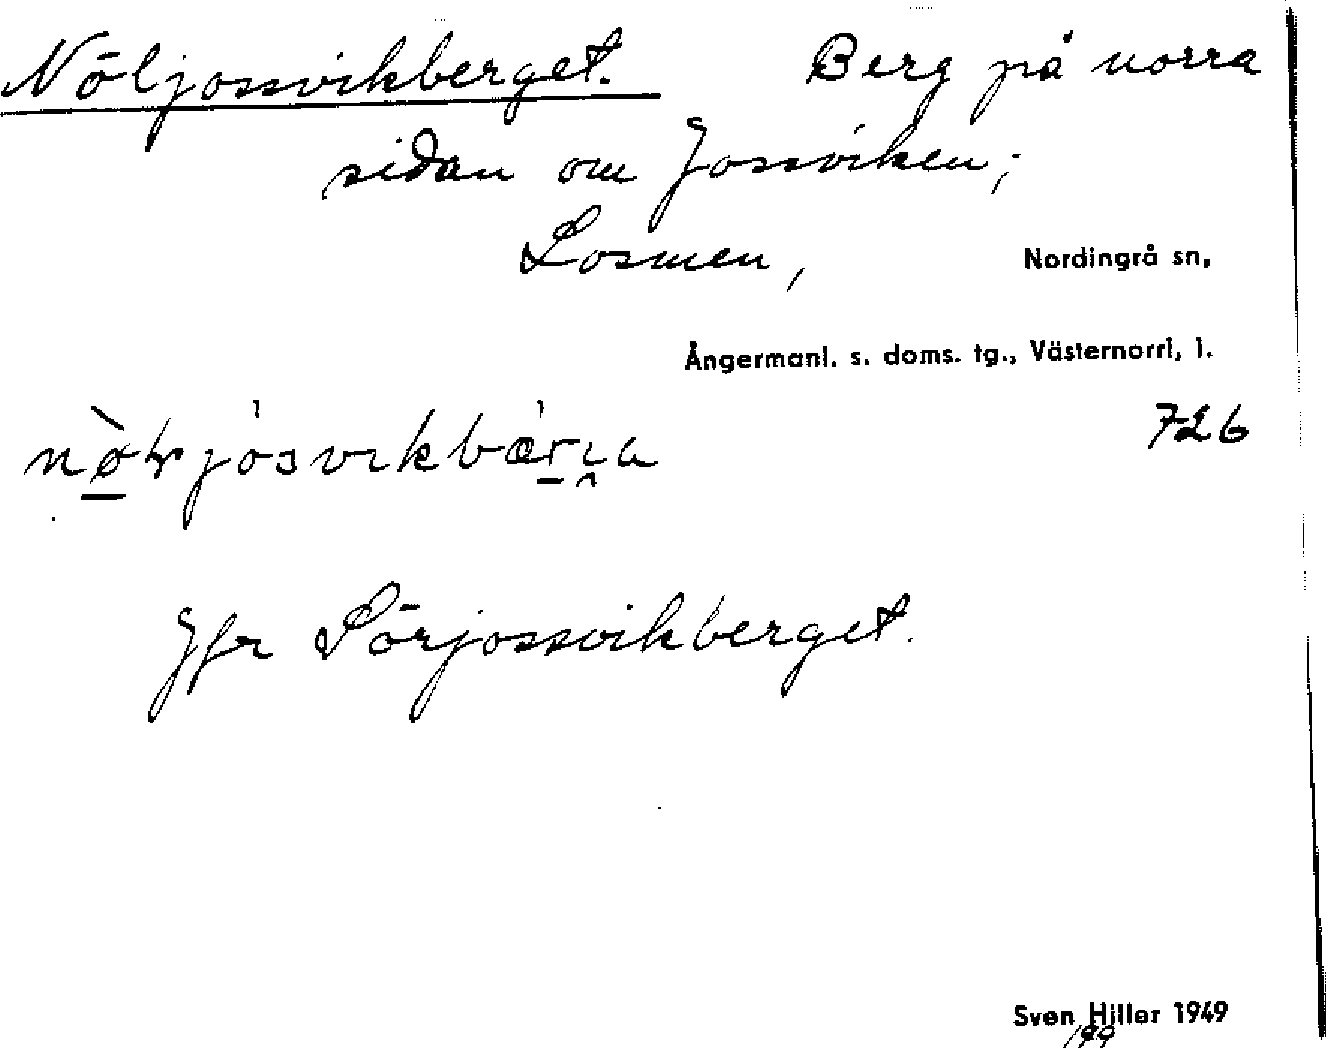 Nöljossvikberget. Berg på norra
sidan om Jossviken;
Losmen, Nordingrå sn,
Ångermanl. s. doms. tg., Västernorrl, l.
726
Jfr Sörjossvikberget.
Sven Hiller 1949